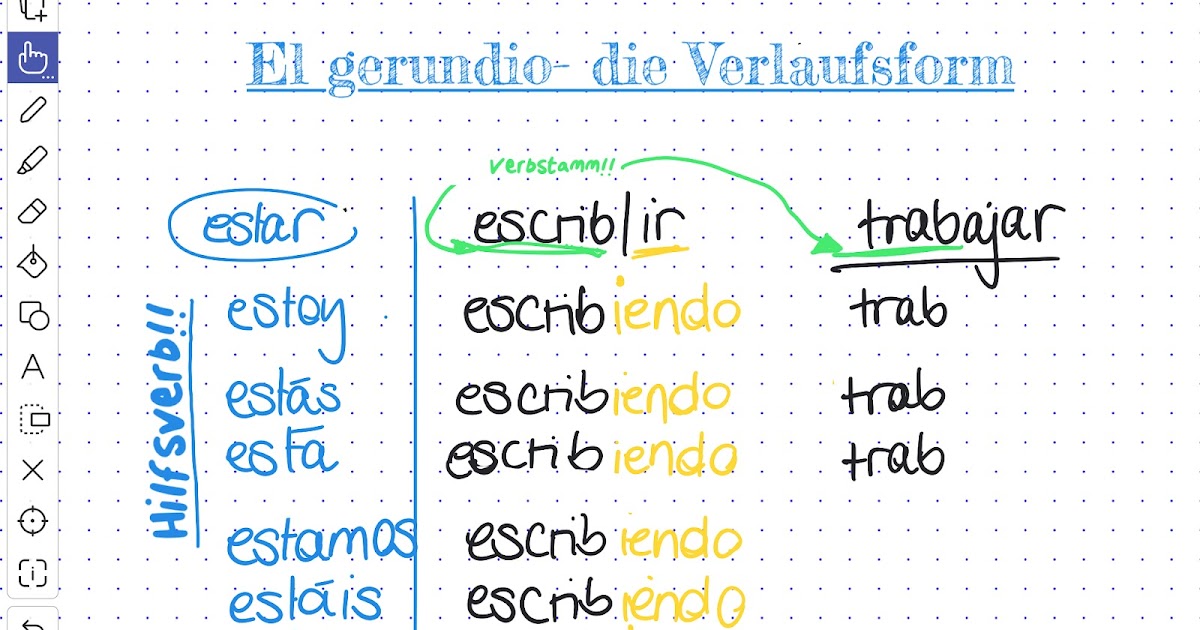 El gerundio- die Verlaufsform
verbstamm!!
estar escrib|ir trabajar
Hilfsverb!!
estoy escribiendo trab
estás escribiendo trab
está escribiendo trab
estamos escribiendo
estáis escribiendo